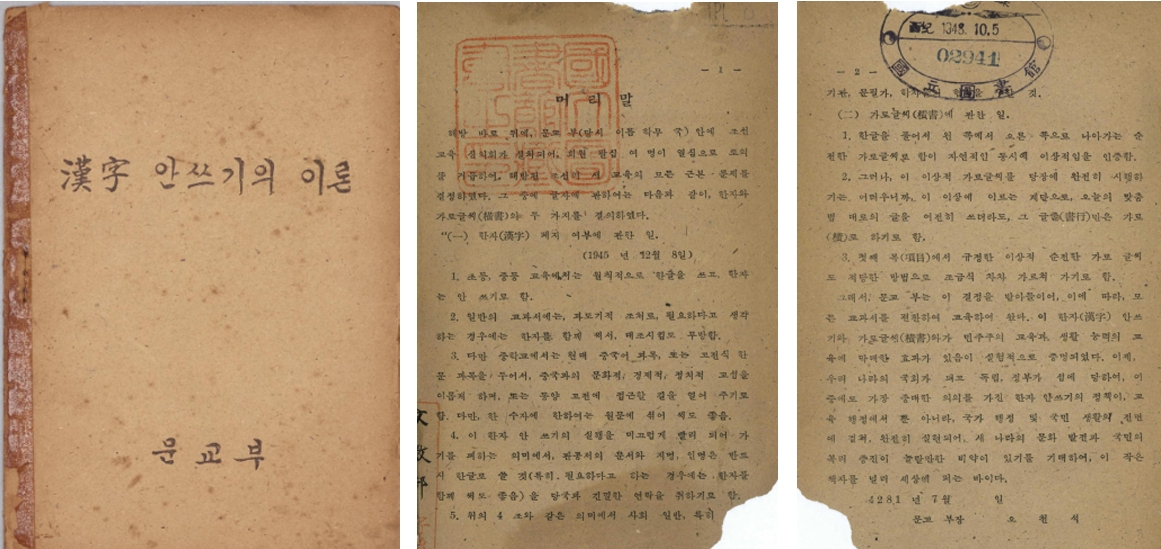 漢字 안쓰기의 이론
문교부
— 1 —
머 리 말
해방 바로 뒤에, 문교 부(당시 이름 학무 국) 안에 조선
교육 심의회가 설치되어, 위원 팔십 여 명이 열심으로 토의
를 거듭하여, 해방된 조선의 새 교육의 모든 근본 문제를
결정하였다. 그 중에 글자에 관하여는 다음과 같이, 한자와
가로글씨(橫書)의 두 가지를 결의하였다.
"(一) 한자(漢字) 폐지 여부에 관한 일.
(1945 년 12월 8일)
1. 초등, 중등 교육에서는 원칙적으로 한글을 쓰고 한자
는 안 쓰기로 함.
2. 일반의 교과서에는, 과도기적 조처로, 필요하다고 생각
하는 경우에는 한자를 함께 써서, 대조시킴도 무방함.
3. 다만 중학교에서는 현대 중국어 과목, 또는 고전식 한
문 과목을 두어서, 중국과의 문화적, 경제적, 정치적 교섭을
이롭게 하며, 또는 동양 고전에 접근할 길을 열어 주기로
함. 다만, 한 수자에 한하여는 원문에 섞어 써도 좋음.
4. 이 한자 안 쓰기의 실행을 미끄럽게 빨리 되어 가
기를 꾀하는 의미에서, 관공서의 문서와 지명, 인명은 반드
시 한글로 쓸 것(특히 필요하다고 하는 경우에는 한자를
함께 써도 좋음)을 당국과 긴밀한 연락을 취하기로 함.
5. 위의 4 조와 같은 의미에서 사회 일반, 특히
文敎部
西紀 1948. 10. 5
02941
國立圖書館
— 2 —
기관, 문필가, 학자들의 을 것.
(二) 가로글씨(橫書)에 관한 일.
1. 한글을 풀어서 왼 쪽에서 오른 쪽으로 나아가는 순
전한 가로글씨로 함이 자연적인 동시에 이상적임을 인증함.
2. 그러나, 이 이상적 가로글씨를 당장에 완전히 시행하
기는 어려우니까, 이 이상에 이르는 계단으로, 오늘의 맞춤
법 대로의 글을 여전히 쓰더라도, 그 글줄(書行)만은 가로
(橫)로 하기로 함.
3. 첫째 목(項目)에서 규정한 이상적 순전한 가로 글씨
도 적당한 방법으로 조금식 차차 가르쳐 가기로 함.
그래서, 문교 부는 이 결정을 받아들이어, 이에 따라, 모
든 교과서를 편찬하여 교육하여 왔다. 이 한자(漢字) 안쓰
기와 가로글씨(橫書)와가 민주주의 교육과, 생활 능력의 교
육에 막대한 효과가 있음이 실험적으로 증명되었다. 이제,
우리 나라의 국회가 되고 독립, 정부가 섬에 당하여, 이
중에도 가장 중대한 의의를 가진 한자 안쓰기의 정책이, 교
육 행정에서 뿐 아니라, 국가 행정 및 국민 생활의 전면
에 걸쳐, 완전히 실현되어, 새 나라의 문화 발전과 국민의
복리 증진이 놀랄만한 비약이 있기를 기대하여, 이 작은
책자를 널리 세상에 펴는 바이다.
4281 년 7월 일
문교 부장 오 천 석